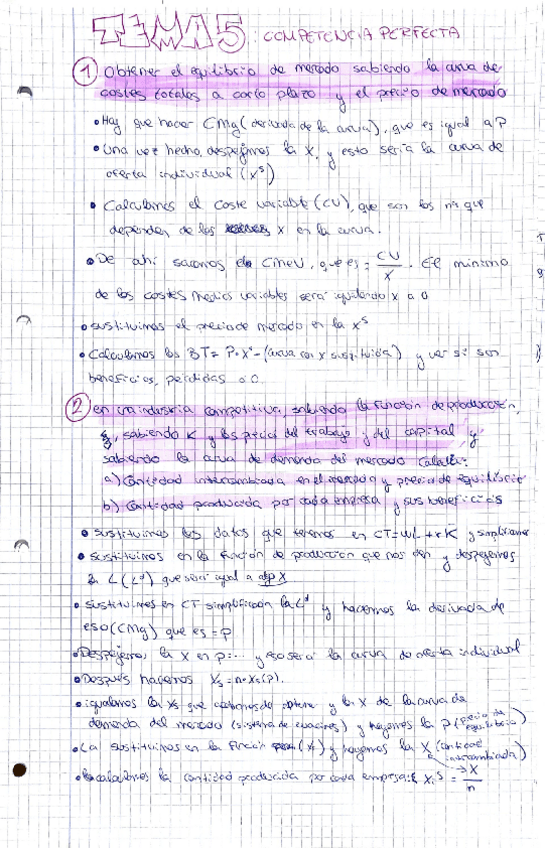 TEMA 5: COMPETENCIA PERFECTA
① Obtener el equilibrio de mercado sabiendo la curva de
costes totales a corto plazo y el precio de mercado
• Hay que hacer CMg (derivada de la curva), que es igual a P
• Una vez hecho, despejamos la X, y esto sería la curva de
oferta individual (xˢ)
• Calculamos el coste variable (CV), que son los nºs que
dependen de las x en la curva.
• De ahí sacamos el CMeV, que es = CV/X. El mínimo
de los costes medios variables será igualando x a 0
• sustituimos el precio de mercado en la xˢ
• Calculamos los BT = P·Xˢ - (curva con x sustituida) y ver si son
beneficios, pérdidas o 0.
② en una industria competitiva, sabiendo la función de producción,
sabiendo K y los precios del trabajo y del capital, y
sabiendo la curva de demanda del mercado calcula:
a) Cantidad intercambiada en el mercado y precio de equilibrio
b) Cantidad producida por cada empresa y sus beneficios
• sustituimos los datos que tenemos en CT = wL + rK y simplificamos
• sustituimos en la función de producción que nos den y despejamos
la L (Lᵈ) que será igual a X
• sustituimos en CT simplificada la Lᵈ y hacemos la derivada de
eso (CMg) que es = p
• Despejamos la X en p = ... y eso será la curva de oferta individual
• Después hacemos Xs = n · xs (p).
• igualamos la Xs que acabamos de obtener y la X de la curva de
demanda del mercado (sistema de ecuaciones) y hayamos la P (precio de equilibrio)
• La sustituimos en la función (Xs) y hayamos la X (cantidad intercambiada)
• calculamos la cantidad producida por cada empresa: xᵢˢ = X/n